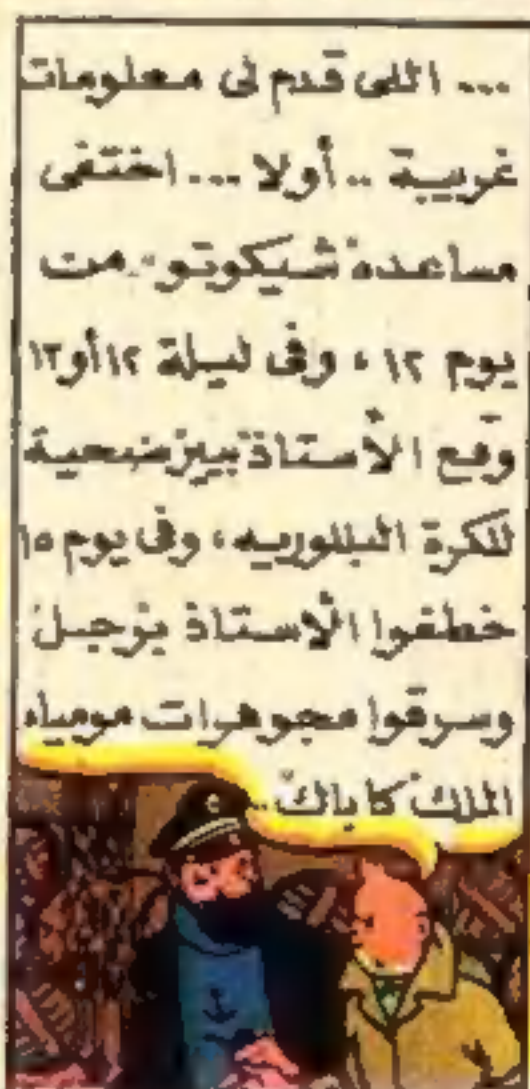 ... اللى قدم لى معلومات
غريبة .. أولا ... اختفى
مساعده شيكوتو .. من
يوم ١٢ ، وفى ليلة ١٢ أو ١٣
وقع الأستاذ بيرجضحية
للكرة البللوريه ، وفى يوم ١٥
خطفوا الأستاذ برجل
وسرقوا مجوهرات مومياء
الملك كاباك ..